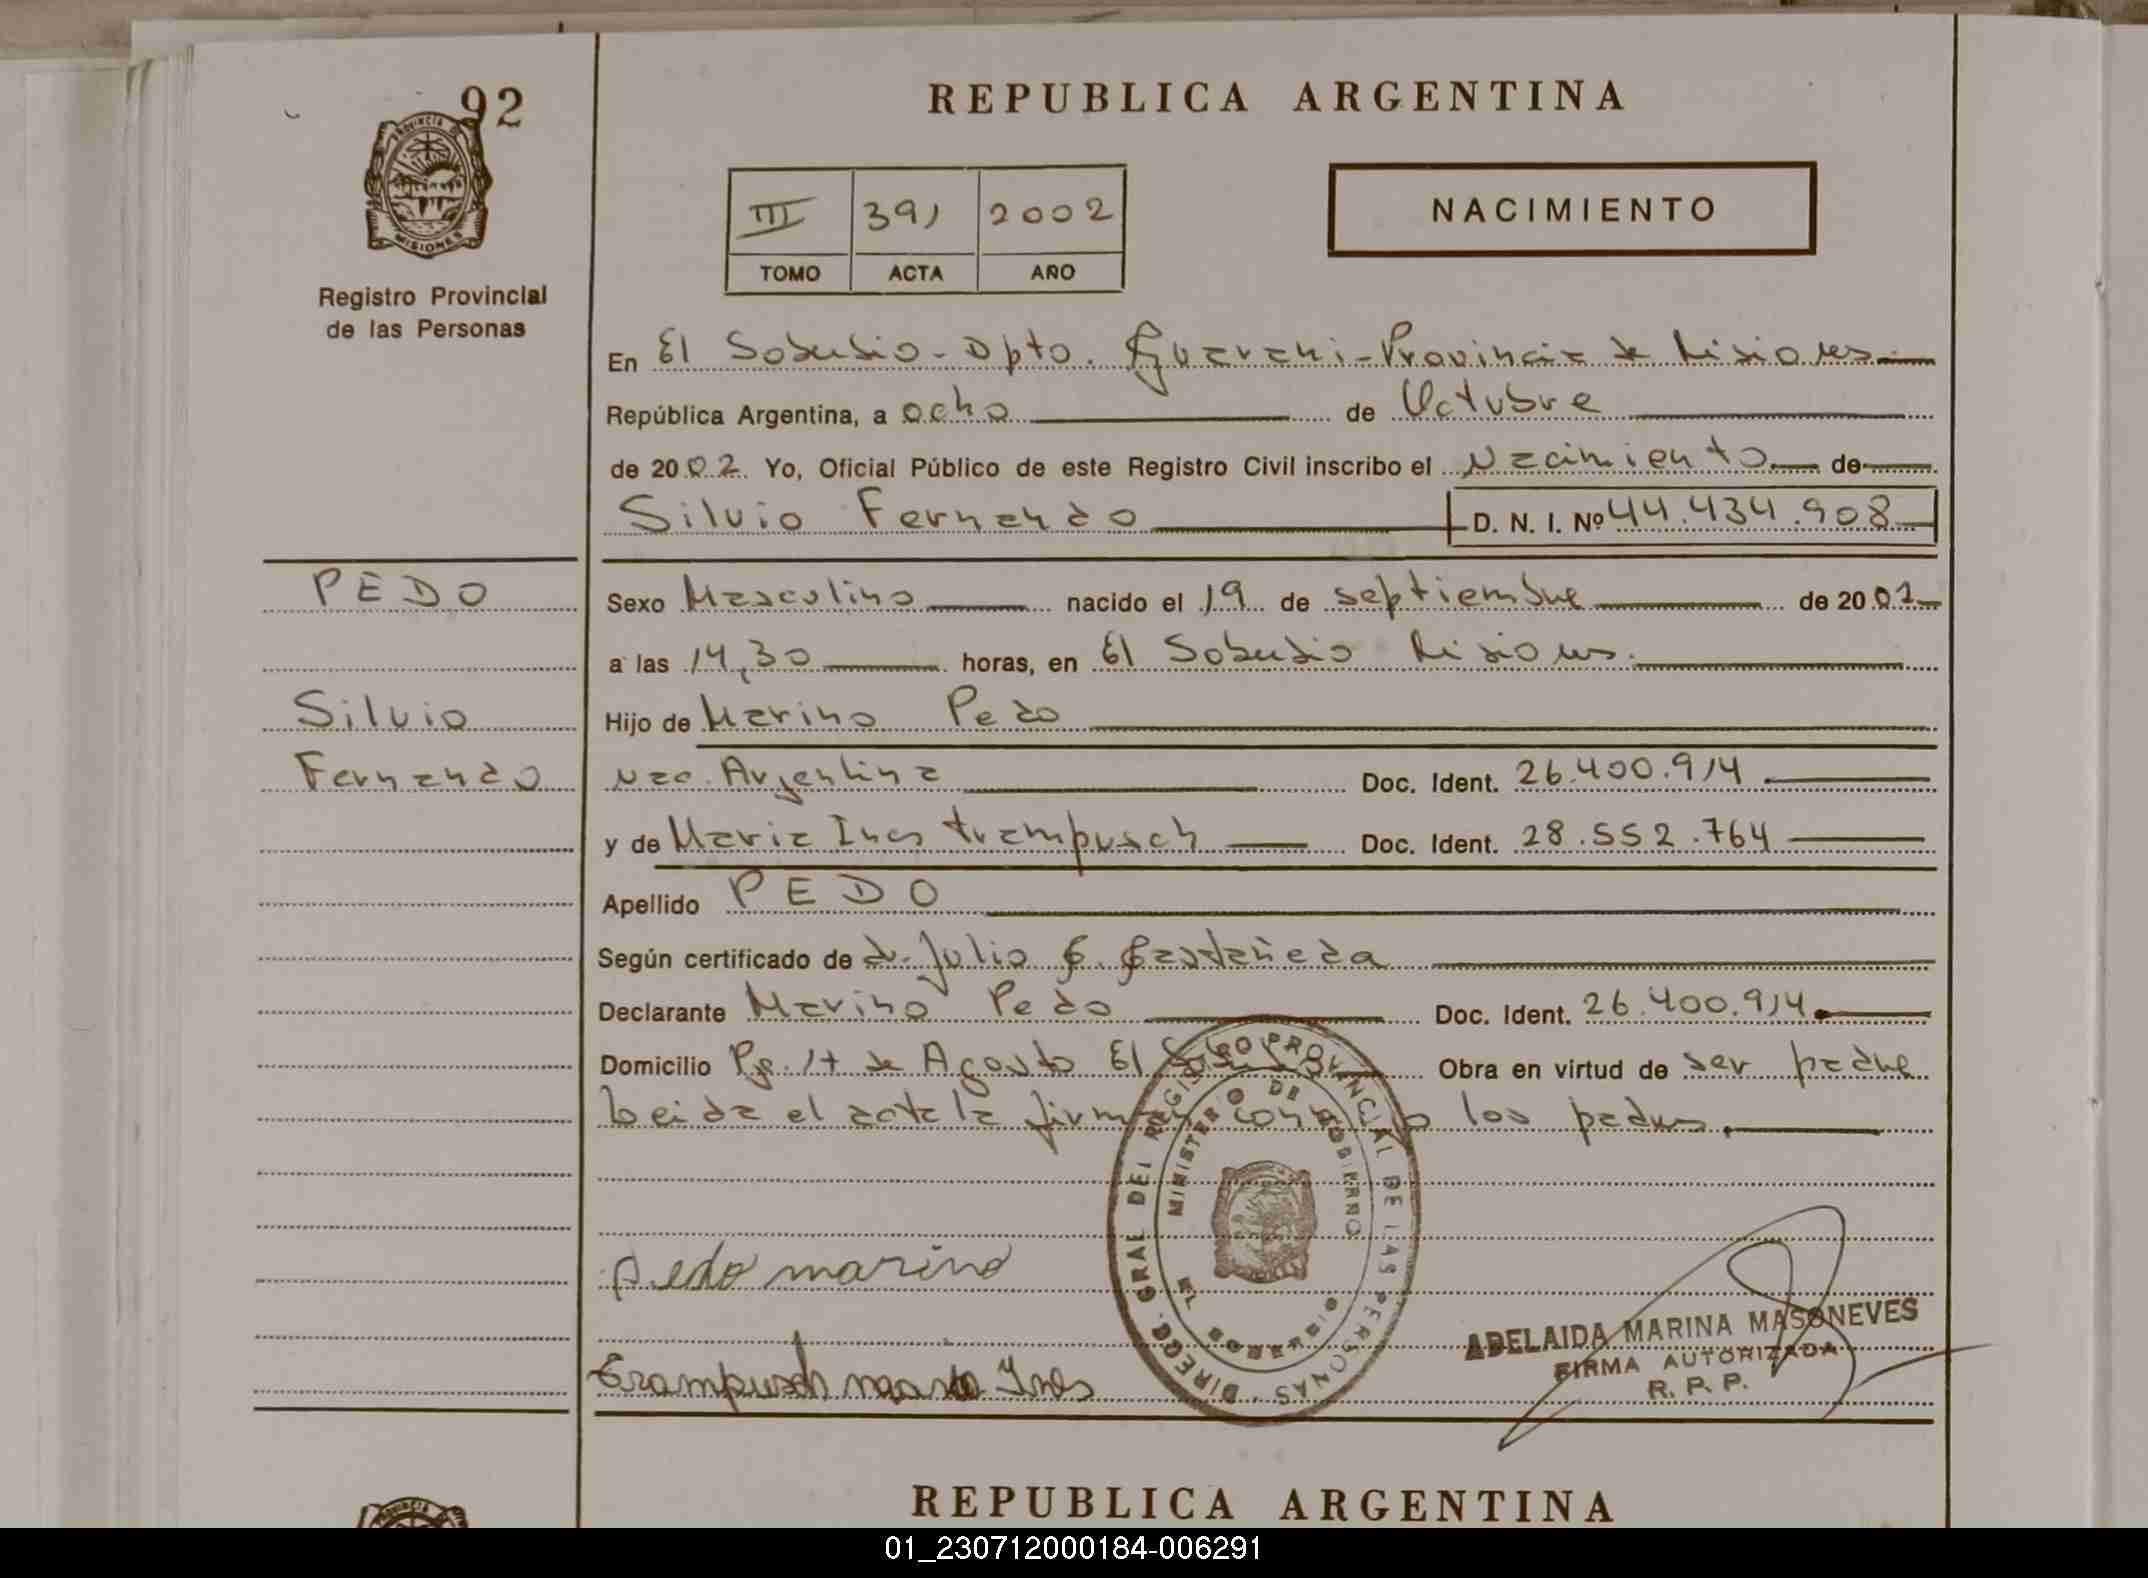 92
PROVINCIA DE
MISIONES
Registro Provincial
de las Personas
REPUBLICA ARGENTINA
III 391 2002
TOMO ACTA AÑO
NACIMIENTO
En El Soberbio - Dpto. Guarani - Provincia de Misiones
República Argentina, a ocho de Octubre
de 2002. Yo, Oficial Público de este Registro Civil inscribo el Nacimiento de
Silvio Fernando D. N. I. Nº 44.434.908
PEDO
Silvio
Fernando
Sexo Masculino nacido el 19 de septiembre de 2002
a las 14,30 horas, en El Soberbio Misiones.
Hijo de Marino Pedo
Nac. Argentina Doc. Ident. 26.400.914
y de Maria Ines trampusch Doc. Ident. 28.552.764
Apellido PEDO
Según certificado de dr. Julio G. Gastañeda
Declarante Marino Pedo Doc. Ident. 26.400.914
Domicilio Pje. 17 de Agosto El Obra en virtud de ser padre
Leida el acta la los padres.
DIRECC. GRAL DEL REGISTRO PROVINCIAL DE LAS PERSONAS
MINISTERIO DE GOBIERNO
pedo marino
Trampusch maria Ines
ADELAIDA MARINA MASONEVES
FIRMA AUTORIZADA
R. P. P.
REPUBLICA ARGENTINA
01_230712000184-006291